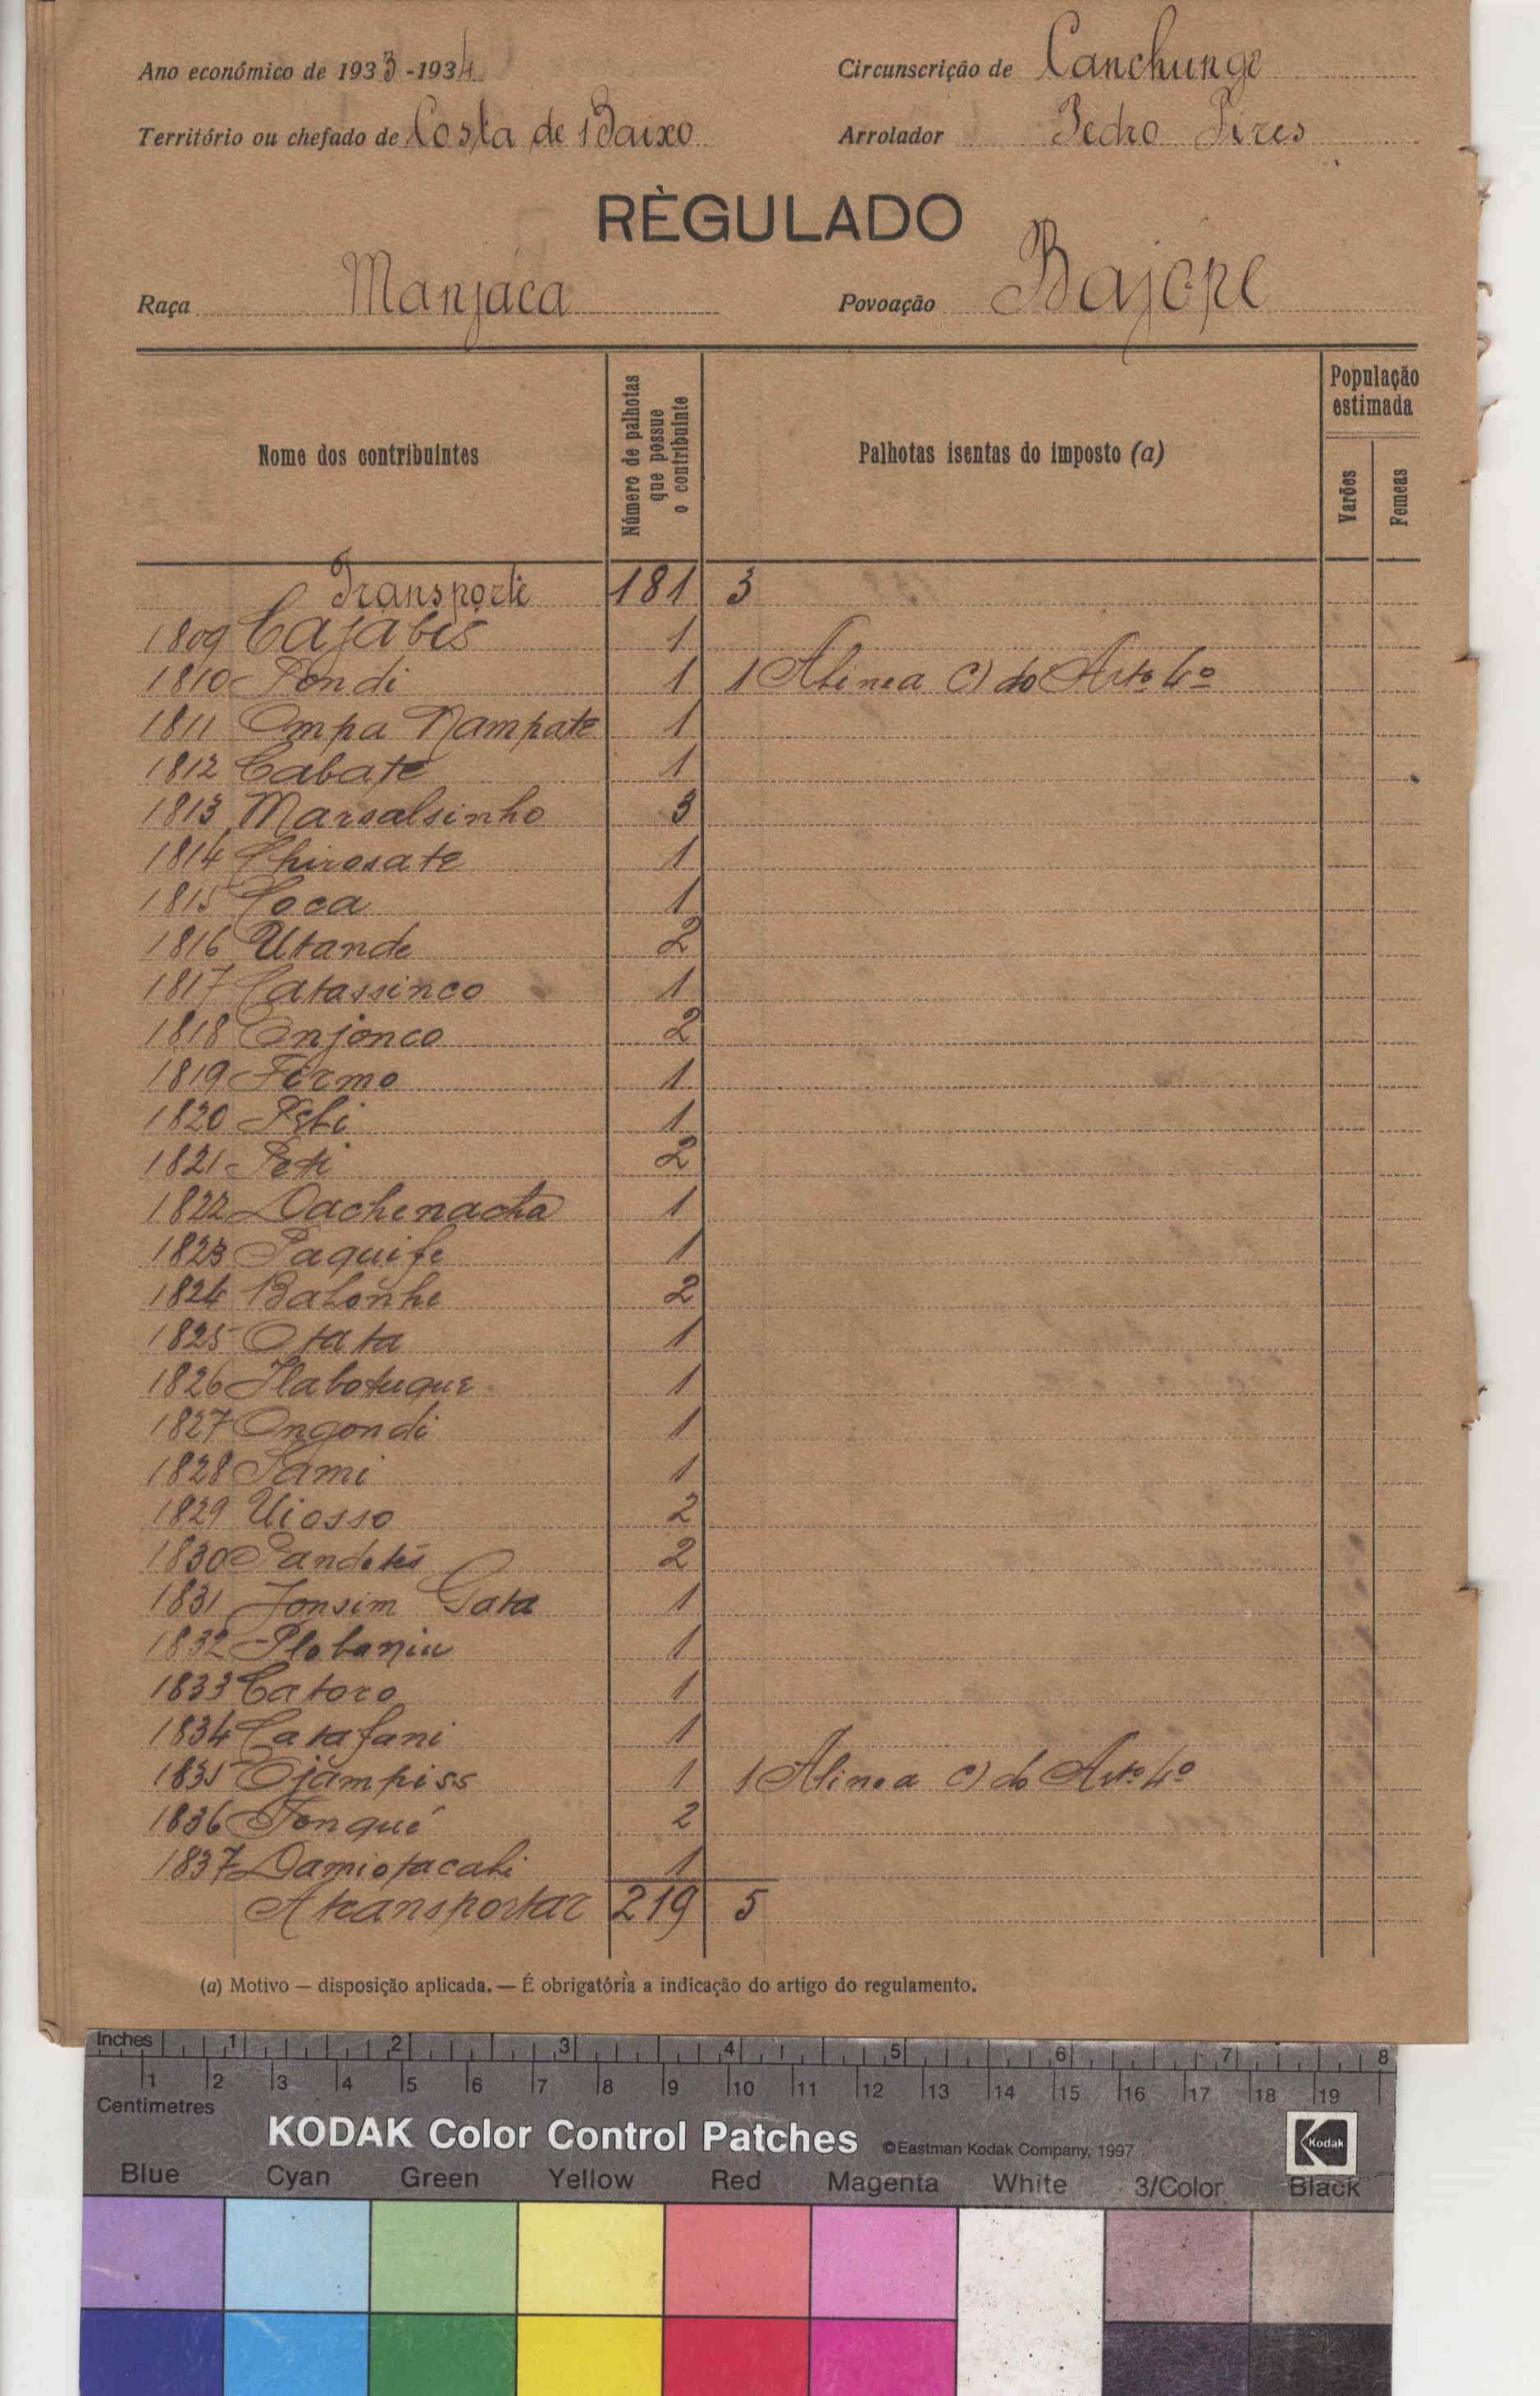 Ano económico de 1933-1934
Circunscrição de Canchungo
Território ou chefado de Costa de Baixo
Arrolador Pedro Pires
RÈGULADO
Raça Manjaca
Povoação Bajópe
Nome dos contribuintes
Número de palhotas que possue o contribuinte
Palhotas isentas do imposto (a)
População estimada
Varões
Femeas
Transporte 181 3
1809 Cajabis 1
1810 Pondi 1 1 Alinea c) do Artº 4º
1811 Ompa Nampate 1
1812 Cabate 1
1813 Marsalsinho 3
1814 Chirosate 1
1815 Coca 1
1816 Utande 2
1817 Catassinco 1
1818 Enjonco 2
1819 Firmo 1
1820 1
1821 Peti 2
1822 Dachenacha 1
1823 Paquife 1
1824 Balonhe 2
1825 Otata 1
1826 1
1827 Ongondi 1
1828 Sami 1
1829 Uiosso 2
1830 2
1831 Jonsim Gata 1
1832 1
1833 Catoro 1
1834 Catafani 1
1835 Ojampiss 1 1 Alinea c) do Artº 4º
1836 Tonqué 2
1837 1
A transportar 219 5
(a) Motivo — disposição aplicada. — É obrigatória a indicação do artigo do regulamento.
Inches 1 2 3 4 5 6 7 8
1 2 3 4 5 6 7 8 9 10 11 12 13 14 15 16 17 18 19
Centimetres
KODAK Color Control Patches ©Eastman Kodak Company, 1997 Kodak
Blue Cyan Green Yellow Red Magenta White 3/Color Black